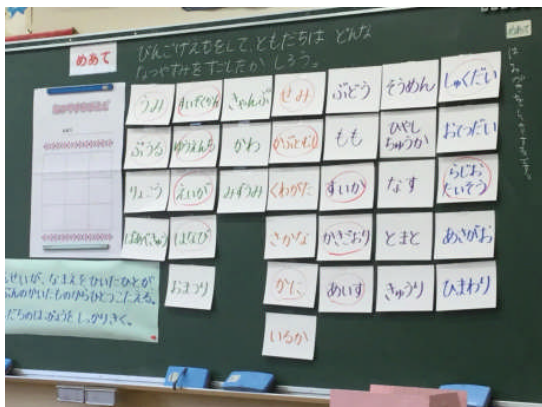 めあて
びんごげえむをして、ともだちは どんな
なつやすみをすごしたか しろう。
めあて
うみ すいぞくかん きゃんぷ せみ ぶどう そうめん しゅくだい
ぷうる ゆうえんち かわ かぶとむし もも ひやしちゅうか おてつだい
りょこう えいが みずうみ くわがた すいか なす らじおたいそう
ばあべきゅう はなび さかな かきごおり とまと あさがお
おまつり かに あいす きゅうり ひまわり
いるか
せいが、なまえをひいたひとが
ぶんのかいたものからひとつこたえる。
だちのはっぴょうをしっかりきく。